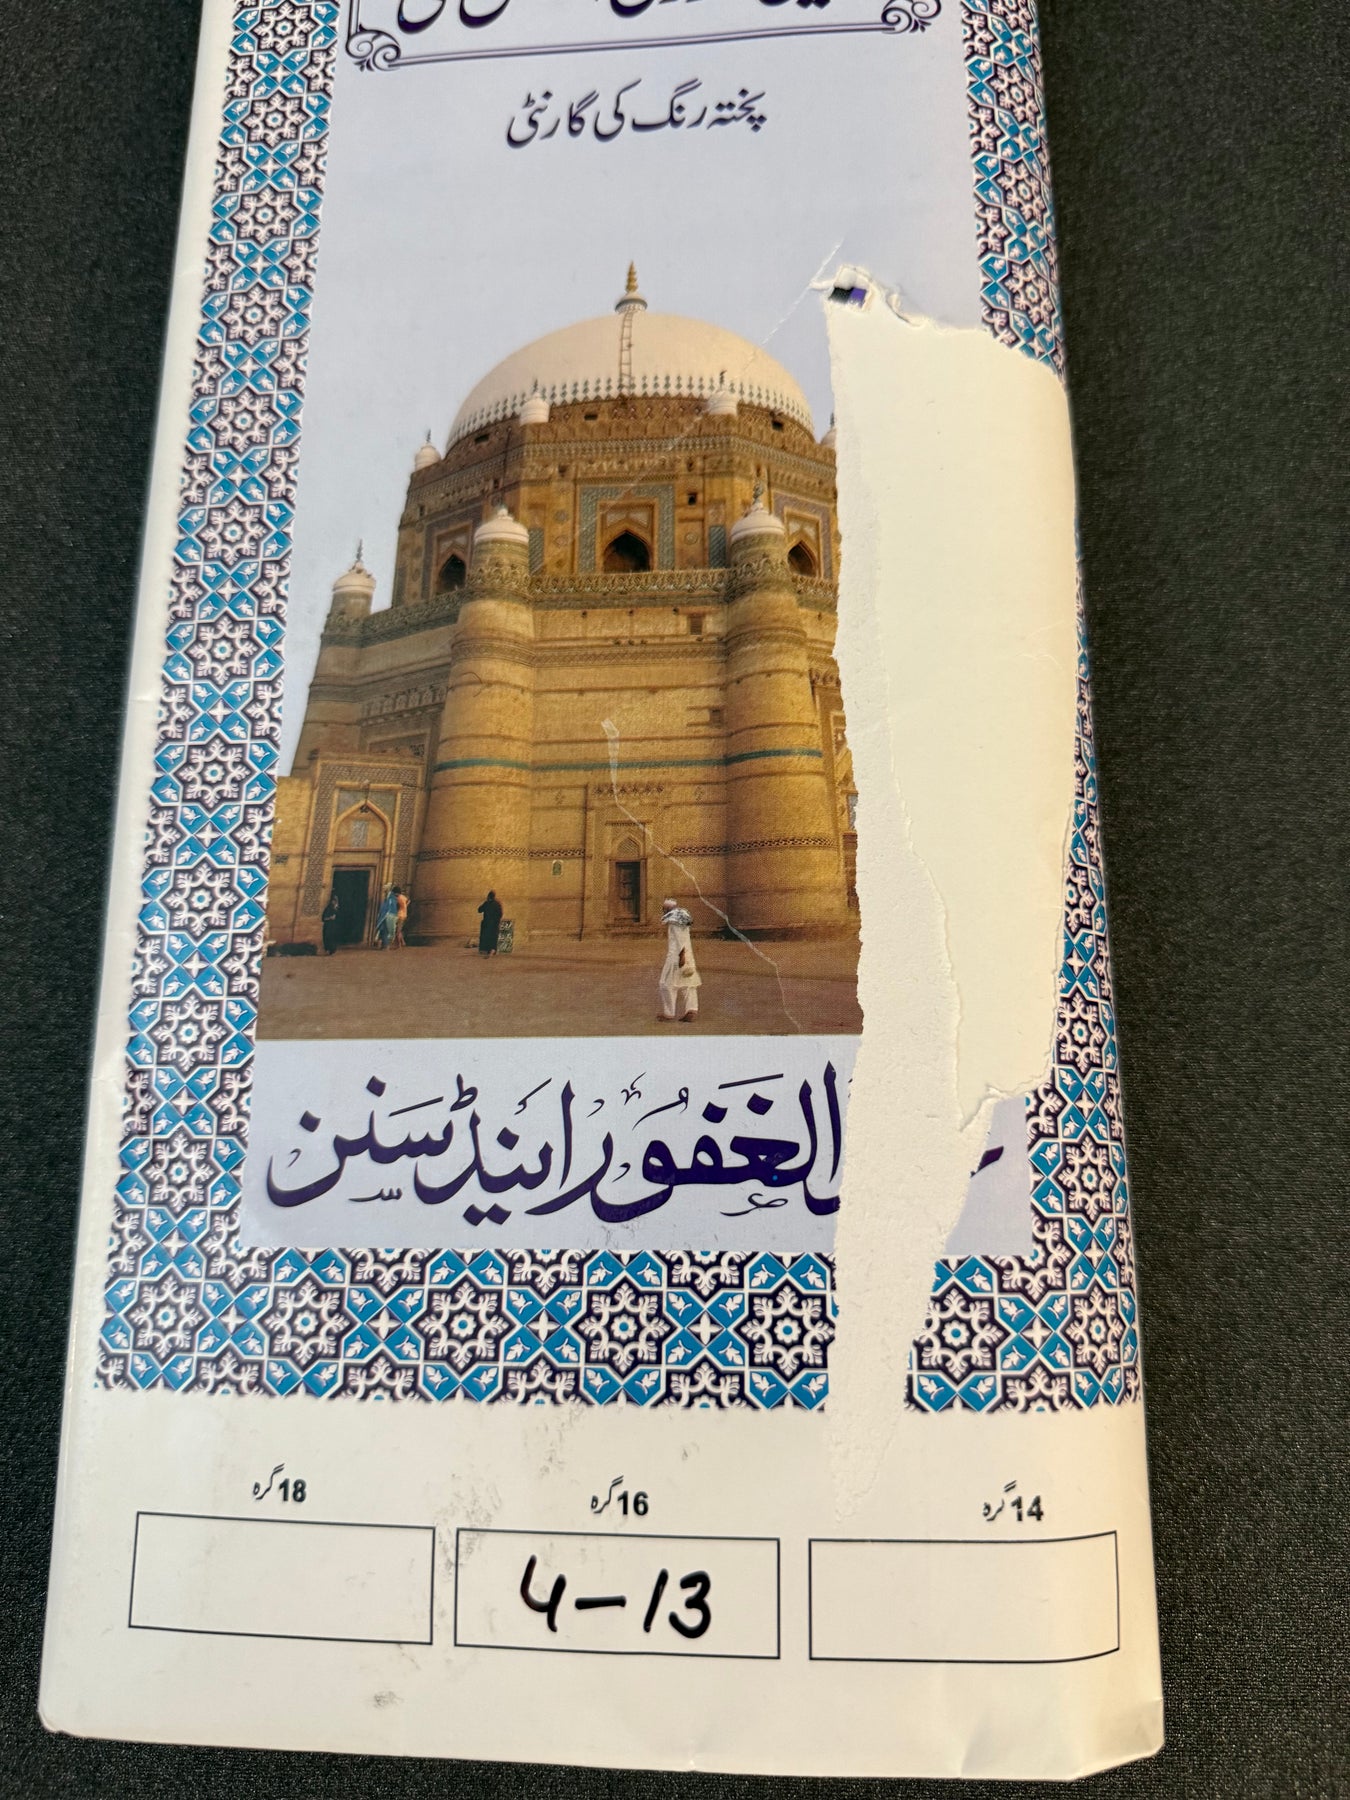 پختہ رنگ کی گارنٹی
الغفور اینڈ سنز
14 گرہ
16 گرہ
18 گرہ
4-13